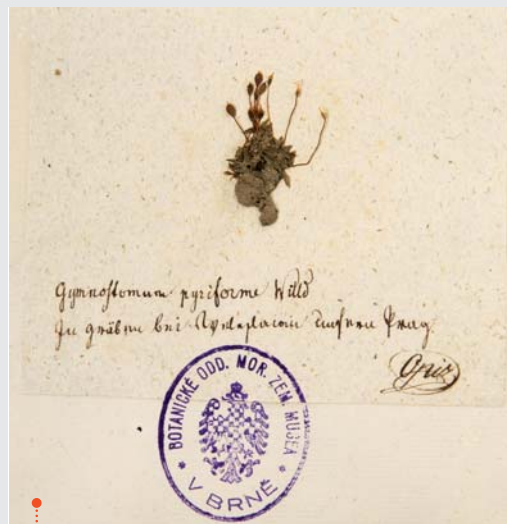 Gymnostomum pyriforme Willd
In gräben bei unfern Prag.
Opiz
BOTANICKÉ ODD. MOR. ZEM. MUSEA
* V BRNĚ *